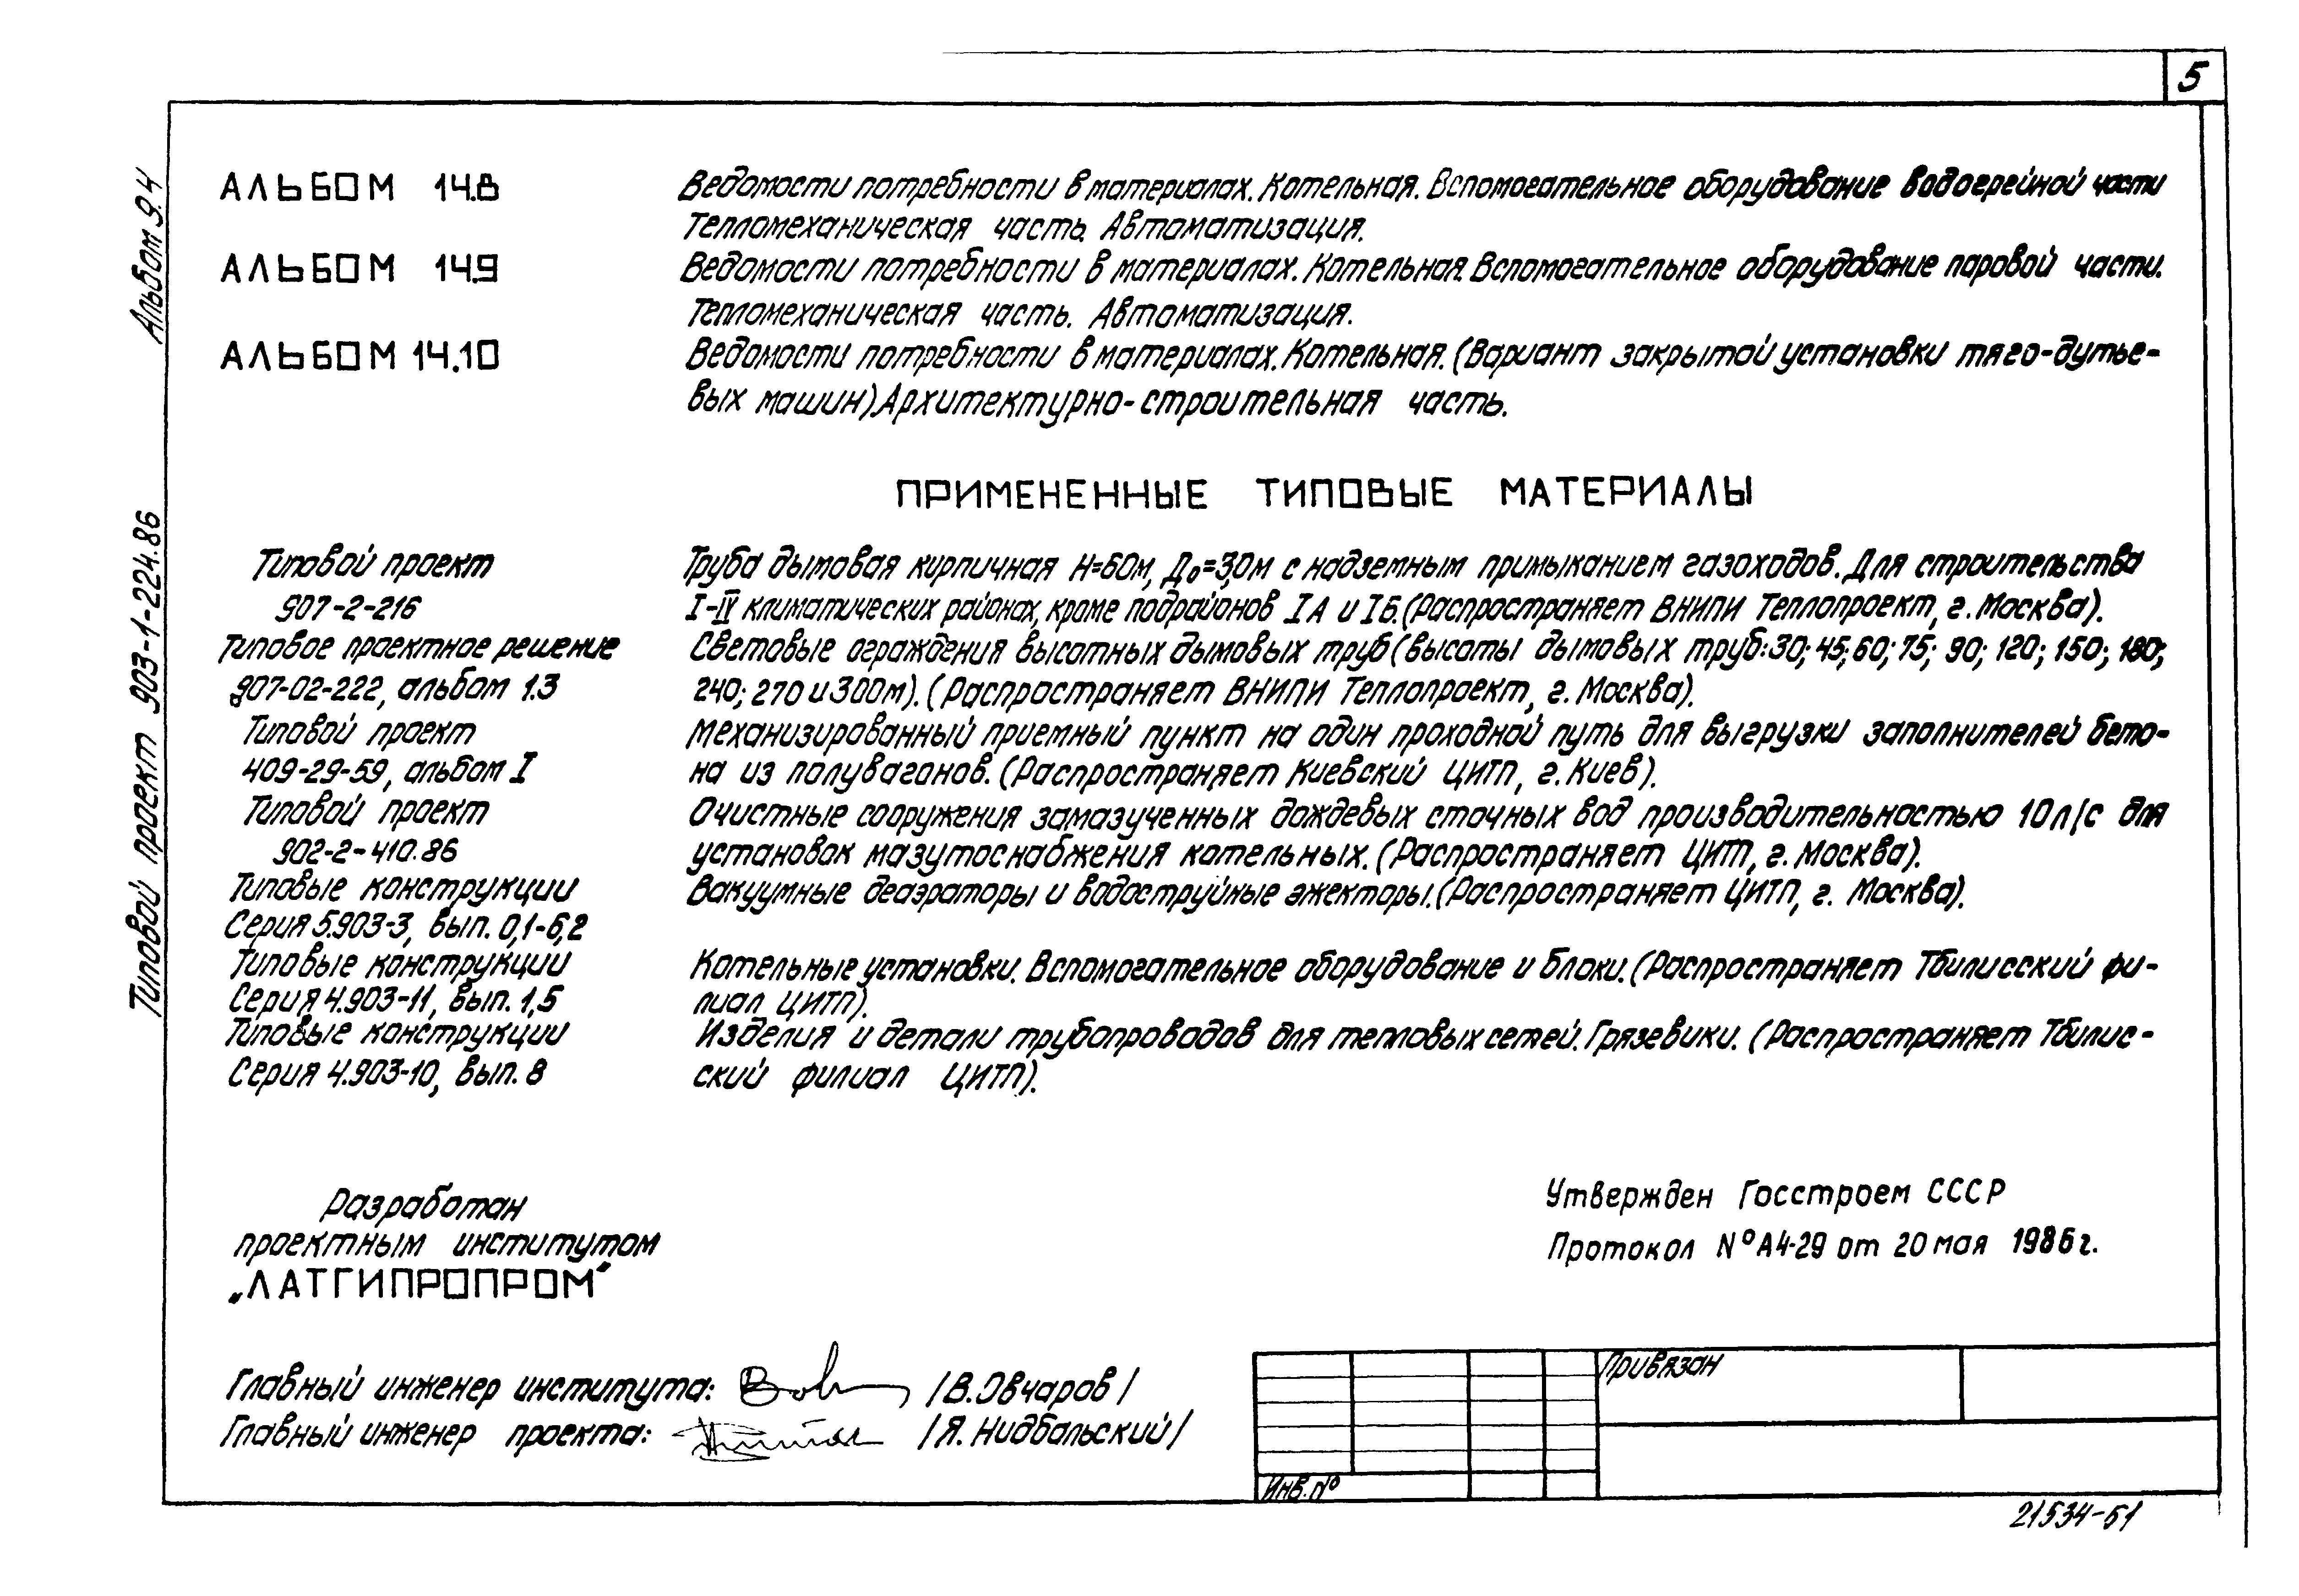 5
Альбом 9.4
Типовой проект 903-1-224.86
АЛЬБОМ 14.8 Ведомости потребности в материалах. Котельная. Вспомогательное оборудование водогрейной части
Тепломеханическая часть. Автоматизация.
АЛЬБОМ 14.9 Ведомости потребности в материалах. Котельная. Вспомогательное оборудование паровой части.
Тепломеханическая часть. Автоматизация.
АЛЬБОМ 14.10 Ведомости потребности в материалах. Котельная. (Вариант закрытой установки тяго-дутье-
вых машин). Архитектурно-строительная часть.
ПРИМЕНЕННЫЕ ТИПОВЫЕ МАТЕРИАЛЫ
Типовой проект Труба дымовая кирпичная Н=60м, До=3,0м с надземным примыканием газоходов. Для строительства
907-2-216 I-IV климатических районах, кроме подрайонов IА и IБ. (Распространяет ВНИПИ Теплопроект, г. Москва).
Типовое проектное решение Световые ограждения высотных дымовых труб (высоты дымовых труб: 30; 45; 60; 75; 90; 120; 150; 180;
907-02-222, альбом 1.3 240; 270 и 300м). (Распространяет ВНИПИ Теплопроект, г. Москва).
Типовой проект Механизированный приемный пункт на один проходной путь для выгрузки заполнителей бето-
409-29-59, альбом I на из полувагонов. (Распространяет Киевский ЦИТП, г. Киев).
Типовой проект Очистные сооружения замазученных дождевых сточных вод производительностью 10 л/с для
902-2-410.86 установок мазутоснабжения котельных. (Распространяет ЦИТП, г. Москва).
Типовые конструкции Вакуумные деаэраторы и водоструйные эжекторы. (Распространяет ЦИТП, г. Москва).
Серия 5.903-3, вып. 0,1-6,2
Типовые конструкции Котельные установки. Вспомогательное оборудование и блоки. (Распространяет Тбилисский фи-
Серия 4.903-11, вып. 1,5 лиал ЦИТП).
Типовые конструкции Изделия и детали трубопроводов для тепловых сетей. Грязевики. (Распространяет Тбилис-
Серия 4.903-10, вып. 8 ский филиал ЦИТП).
Разработан
проектным институтом
„ЛАТГИПРОПРОМ"
Утвержден Госстроем СССР
Протокол № А4-29 от 20 мая 1986 г.
Главный инженер института: /В. Овчаров/
Главный инженер проекта: /Я. Нидбальский/
Привязан
Инв. №
21534-51